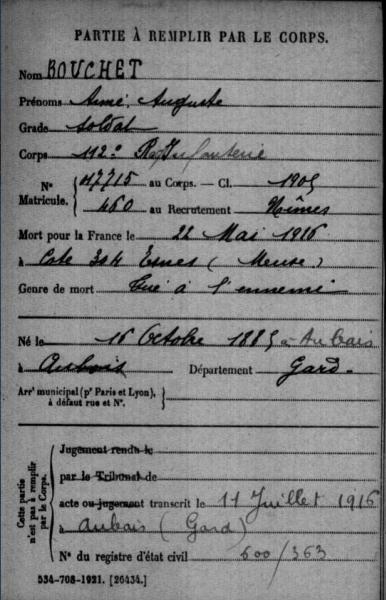 PARTIE À REMPLIR PAR LE CORPS.
Nom BOUCHET
Prénoms Aimé Auguste
Grade Soldat
Corps 112e Rgt Infanterie
Nos Matricule. { 17715 au Corps. — Cl. 1905
460 au Recrutement Nîmes
Mort pour la France le 22 Mai 1916
à Cote 304 Esnes (Meuse)
Genre de mort Tué à l'ennemi
Né le 16 Octobre 1885 à Aubais
à Aubais Département Gard
Arrt municipal (pr Paris et Lyon), à défaut rue et No. }
Cette partie n'est pas à remplir par le Corps.
Jugement rendu le
par le Tribunal de
acte ou jugement transcrit le 11 Juillet 1916
à Aubais (Gard)
No du registre d'état civil 600/363
534-708-1921. [26434.]